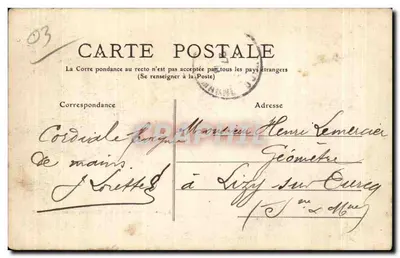 03
CARTE POSTALE
La Correspondance au recto n'est pas acceptée par tous les pays étrangers
(Se renseigner à la Poste)
Correspondance
Adresse
Cordiale poignée
de mains
J Lorette
Monsieur Henri Lemercier
Géomètre
à Lizy sur Ourcq
(Sne & Mne)